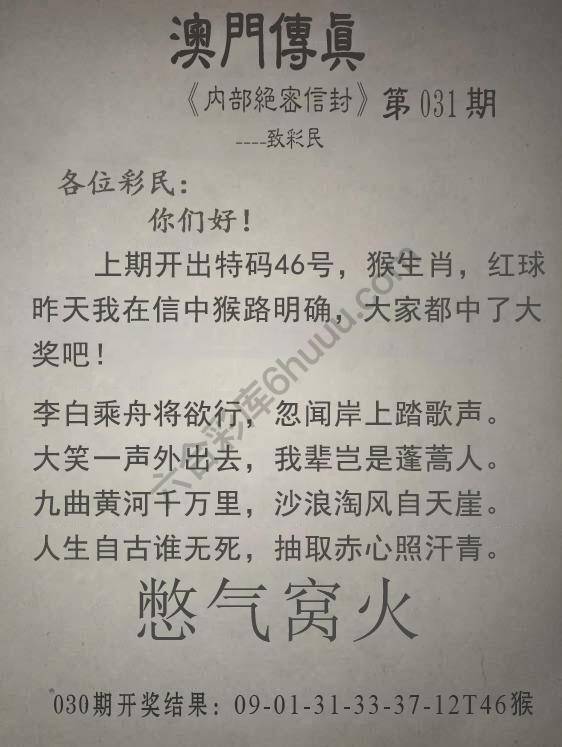 澳門傳眞
《内部絕密信封》第031期
----致彩民
各位彩民：
你们好！
上期开出特码46号，猴生肖，红球
昨天我在信中猴路明确，大家都中了大
奖吧！
李白乘舟将欲行，忽闻岸上踏歌声。
大笑一声外出去，我辈岂是蓬蒿人。
九曲黄河千万里，沙浪淘风自天崖。
人生自古谁无死，抽取赤心照汗青。
憋气窝火
030期开奖结果：09-01-31-33-37-12T46猴
六合彩库6huuu.com